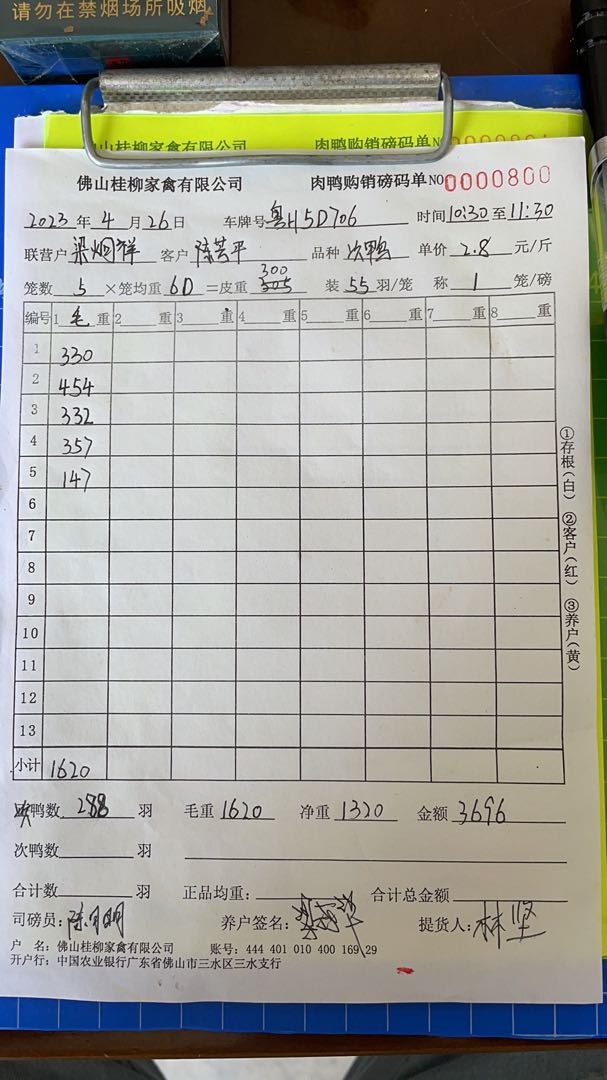 请勿在禁烟场所吸烟
山桂柳家禽有限公司 肉鸭购销磅码单
佛山桂柳家禽有限公司 肉鸭购销磅码单NO 0000800
2023年4月26日 车牌号 粤H5D706 时间10:30至11:30
联营户 梁烟祥 客户 陈 平 品种 次鸭 单价 2.8 元/斤
300
笼数 5 ×笼均重 60 =皮重 305 装 55 羽/笼 称 1 笼/磅
编号 1 毛 重 2 重 3 重 4 重 5 重 6 重 7 重 8 重
1 330
2 454
3 332
4 357
5 147
6
7
8
9
10
11
12
13
小计 1620
①存根(白) ②客户(红) ③养户(黄)
次鸭数 288 羽 毛重 1620 净重 1320 金额 3696
次鸭数 羽
合计数 羽 正品均重: 合计总金额
司磅员: 养户签名: 提货人: 林坚
户 名: 佛山桂柳家禽有限公司 账号: 444 401 010 400 169 29
开户行: 中国农业银行广东省佛山市三水区三水支行